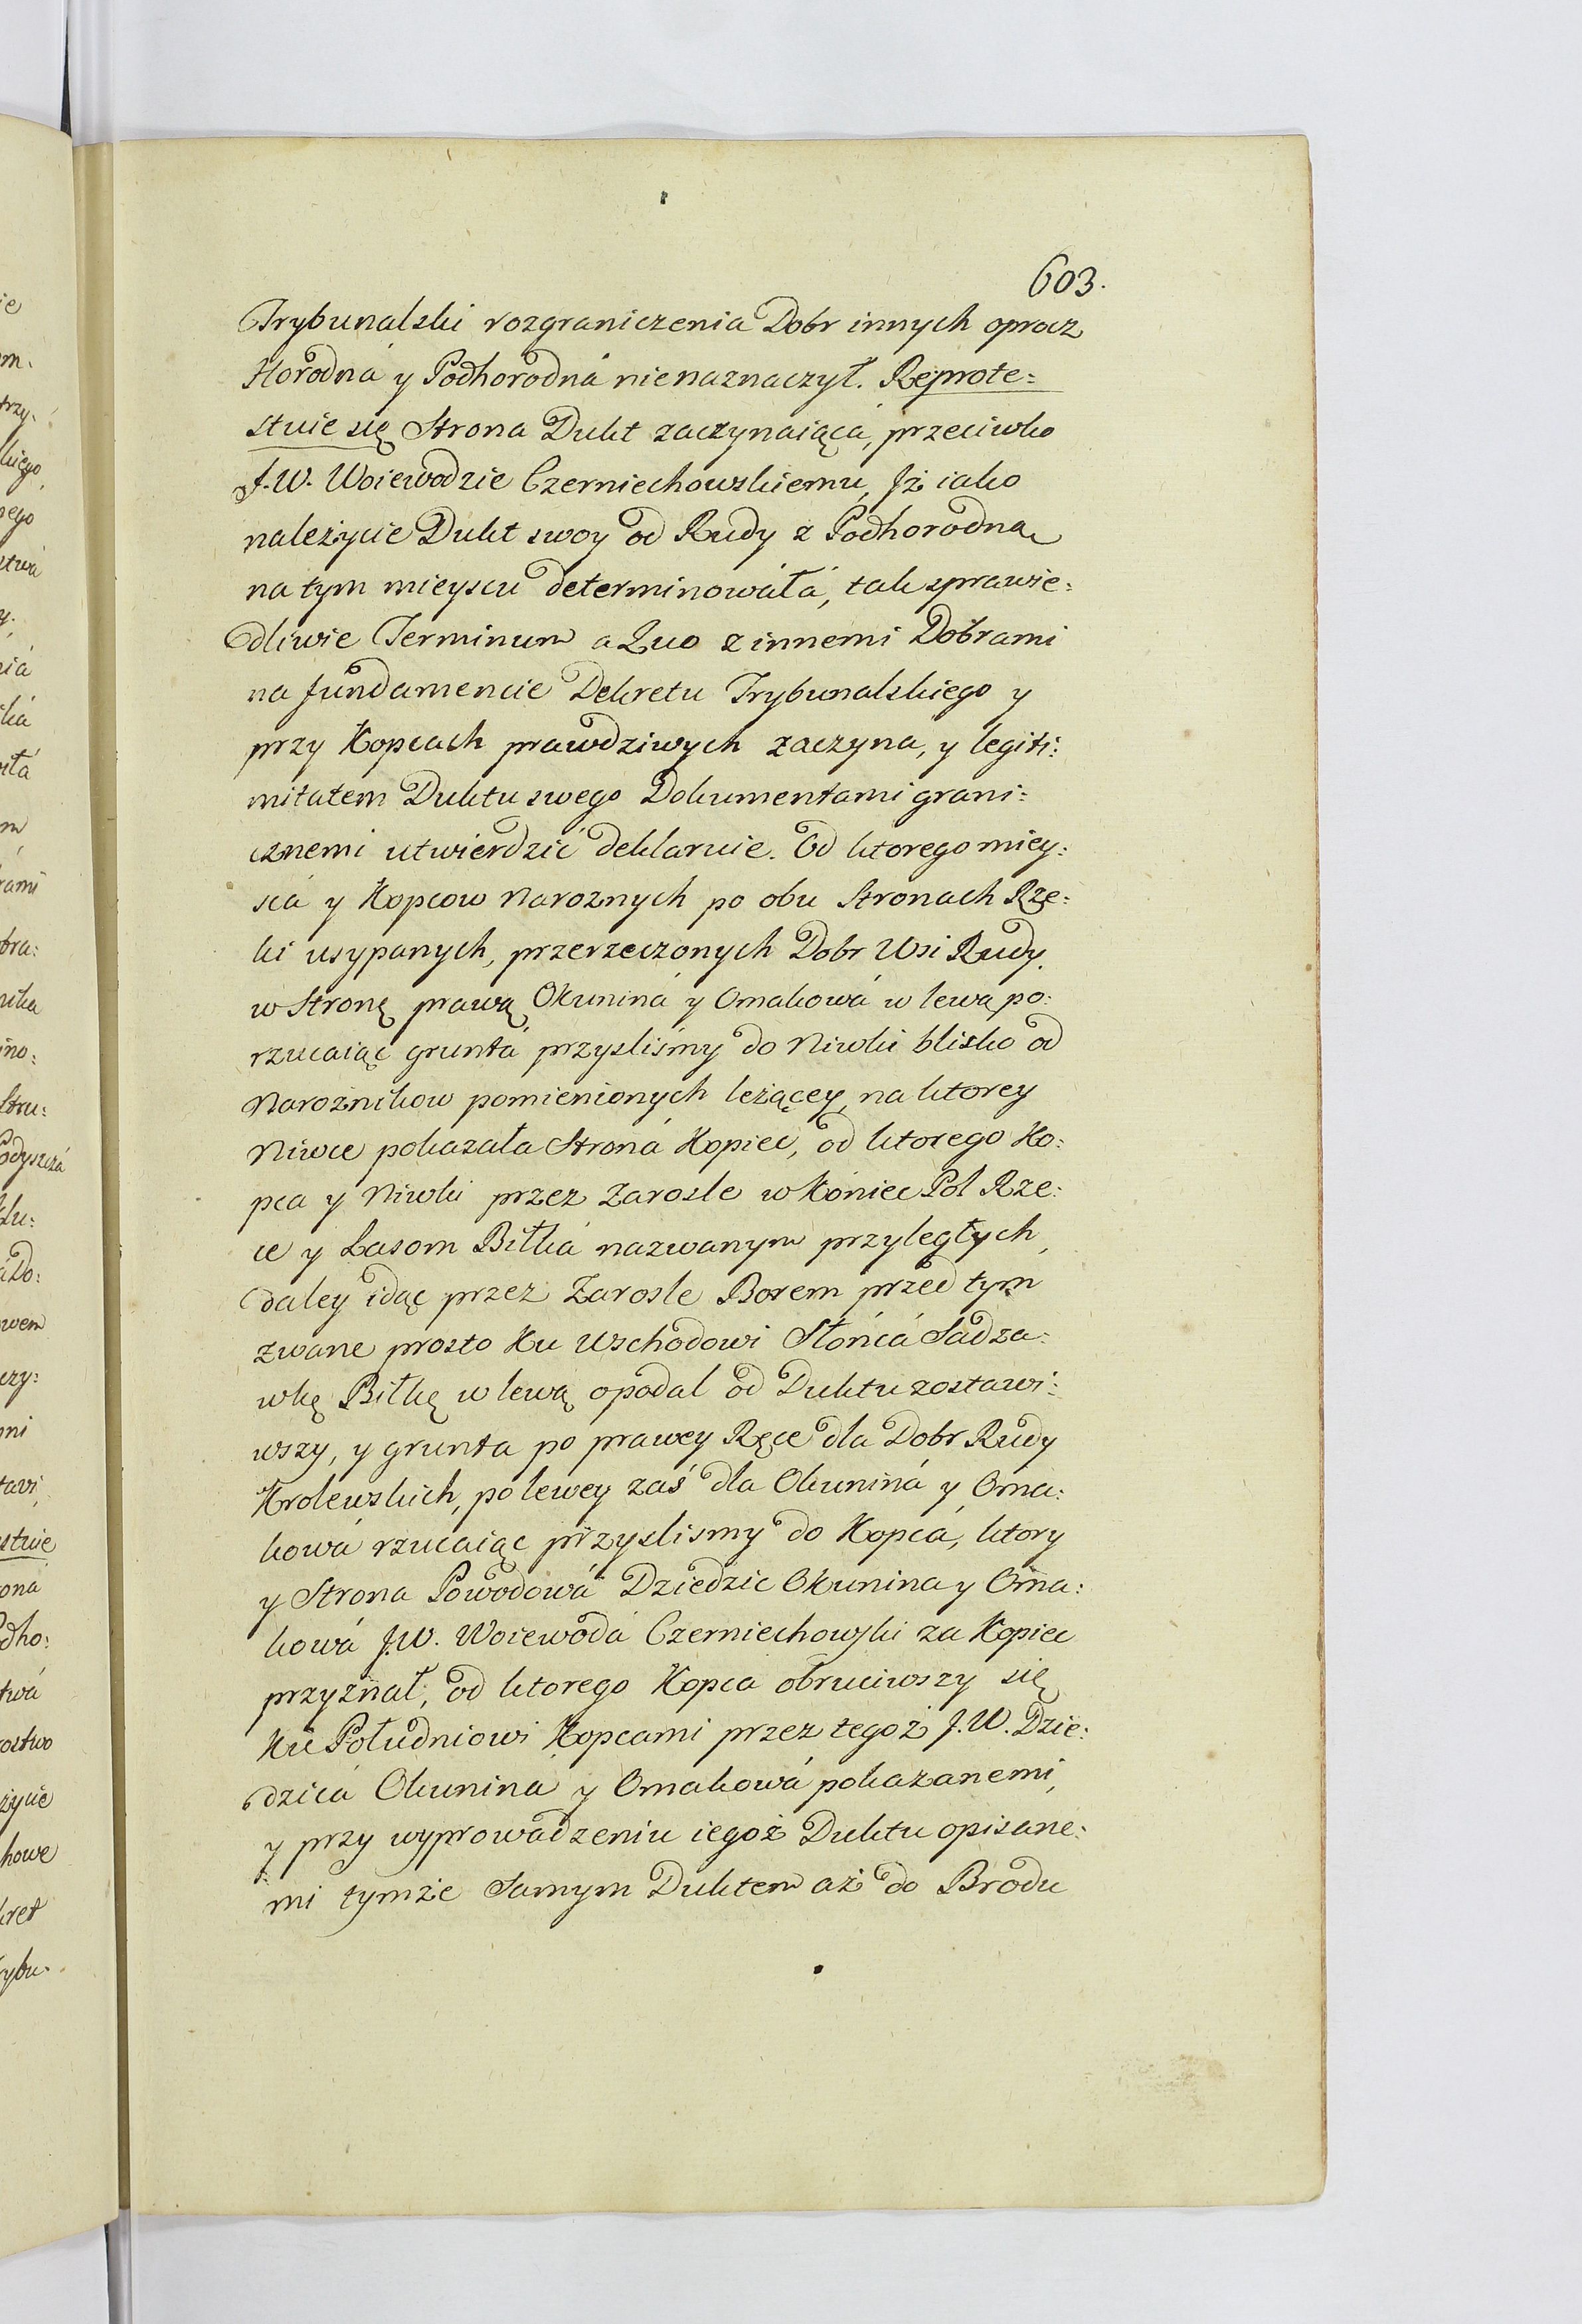 603.
Trybunalski rozgraniczenia Dobr innych oprocz
Horodná y Podhorodná nienaznaczył. Reprote=
stuie się Strona Dukt zaczynaiąca, przeciwko
J.W. Woiewodzie Czerniechowskiemu, Jż iako
należycie Dukt swoy od Rudy z Podhorodna
na tym mieyscu determinowáłá, tak sprawie=
dliwie Terminum a Quo z innemi Dobrami
na fundamencie Dekretu Trybunalskiego y
przy Kopcach prawdziwych zaczyna, y legiti=
mitatem Duktu swego Dokumentami grani=
cznemi utwierdzić deklaruie. Od ktorego miey=
scá y Kopcow Naroznych po obu Stronach Rze=
ki usypanych, przerzeczonych Dobr Wsi Rudy
w Stronę prawą Okuniná y Omakowá w lewą po=
rzucaiąc gruntá przysliśmy do Niwki blisko od
Narożnikow pomienionych leżącey, na ktorey
Niwce pokazała Stroná Kopiec, od ktorego Ko=
pca y Niwki przez Zarosle w Koniec Pol Rze=
ce y Lasom Biłká nazwanym przyległych,
daley idąc przez Zarosle Borem przed tym
zwane prosto Ku Wschodowi Słońcá Sadza=
wkę Biłkę w lewą opodal od Duktu zostawi=
wszy, y grunta po prawey Ręce dla Dobr Rudy
Krolewskich, po lewey zaś dla Okuniná y Oma=
kowá rzucaiąc przyslismy do Kopcá, ktory
y Strona Powodowá Dziedzic Okunina y Oma=
kowá J.W. Woiewodá Czerniechowski za Kopiec
przyznał, od ktorego Kopca obruciwszy się
Ku Południowi Kopcami przez tegoż J.W. Dzie=
dzicá Okunina y Omakowá pokazanemi,
y przy wyprowadzeniu iegoż Duktu opisane=
mi tymże Samym Duktem aż do Brodu